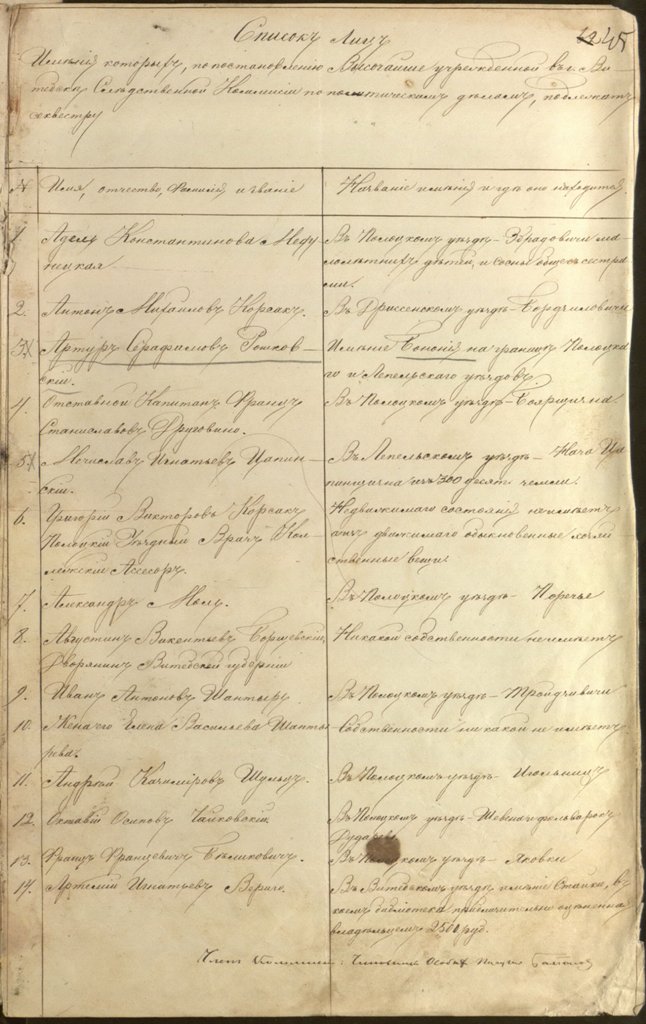 Списокъ Лицъ
245
Имѣнія которыхъ, по постановленію Высочайше учрежденной въ г. Ви-
тебскѣ Слѣдственной Коммисіи по политическимъ дѣламъ, подлежатъ
секвестру
№ Имя, отчество, фамилія и званіе
Названіе имѣнія и гдѣ оно находится.
1. Адель Константинова
нецкая
Въ Полоцкомъ уѣздѣ ма-
лолѣтнихъ дѣтей, и общее съ сестра-
ми.
2. Антонъ Михаиловъ Корсакъ.
Въ Дриссенскомъ уѣздѣ
3. Артуръ Серафимовъ Рошков-
скій.
Имѣніе Бононія на границѣ Полоцка-
го и Лепельскаго уѣздовъ.
4. Отставной Капитанъ Францъ
Станиславовъ Друховино.
Въ Полоцкомъ уѣздѣ – Боярщина.
5. Мечиславъ Игнатьевъ Цапин-
скій.
Въ Лепельскомъ уѣздѣ – Нача Ца-
пинщина изъ 300 десят. земли.
6. Григорій Викторовъ Корсакъ
Полоцкій Уѣздный Врачъ Кол-
лежскій Ассесоръ.
Недвижимаго состоянія неимѣетъ
а изъ движимаго обыкновенные хозяй-
ственные вещи.
7. Александръ Моль.
Въ Полоцкомъ уѣздѣ – Поречье
8. Августинъ Викентьевъ Борщевскій,
Дворянинъ Витебской губерніи
Никакой собственности неимѣетъ
9. Иванъ Антоновъ Шантыръ
Въ Полоцкомъ уѣздѣ –
10. Жена его Елена Васильева Шанты-
рева.
Собственности ни какой не имѣетъ
11. Андрей Казиміровъ Шульцъ.
Въ Полоцкомъ уѣздѣ –
12. Октавій Осиповъ Чайковскій.
Въ Полоцкомъ уѣздѣ – фольварокъ
13. Францъ Францевичъ Бѣликовичъ.
Въ Полоцкомъ уѣздѣ – Яковки
14. Артемій Игнатьевъ Вериго.
Въ Витебскомъ уѣздѣ имѣніе Стайки, въ
коемъ библіотека приблизительно оцѣненна
владѣльцемъ 2500 руб.
Членъ Коммисіи: Чиновникъ Особыхъ